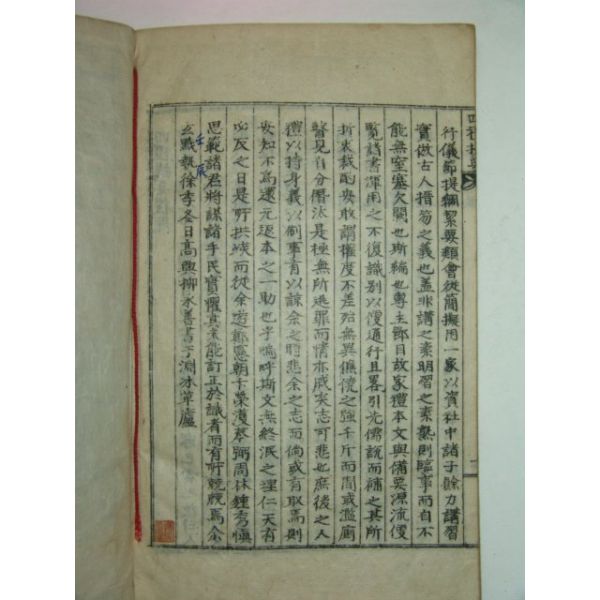 四禮撮要
行儀節提綱絜要類會從簡擬用一家以資社中諸子餘力講習
實倣古人揩笏之義也盖非講之素明習之素熟則臨事而自不
能無窒塞欠闕也斯編也專主鄙目故家禮本文與備要源流優
覽諸書渾用之不復識別以便通行且畧引先儒說而補之其所
折衷裁酌安敢謂權度不差殆無異僬僥之強千斤而間或濫廁
瞽見自分僭汰是極無所逃罪而情亦戚矣志可悲也庶後之人
禮以持身義以制事有以諒余之時悲余之志而倘或有取焉則
安知不爲還元返本之一助也乎嗚呼斯文無終泯之理仁天有
必反之日是所拱竢而從余遊鄭憲朝卞榮濩蔡弼周休鍾秀愼
思範諸君將謀諸手民實懼其未能訂正於識者而有所兢兢焉余
壬辰
玄黓執徐季冬日高興柳永善書于淵氷草廬